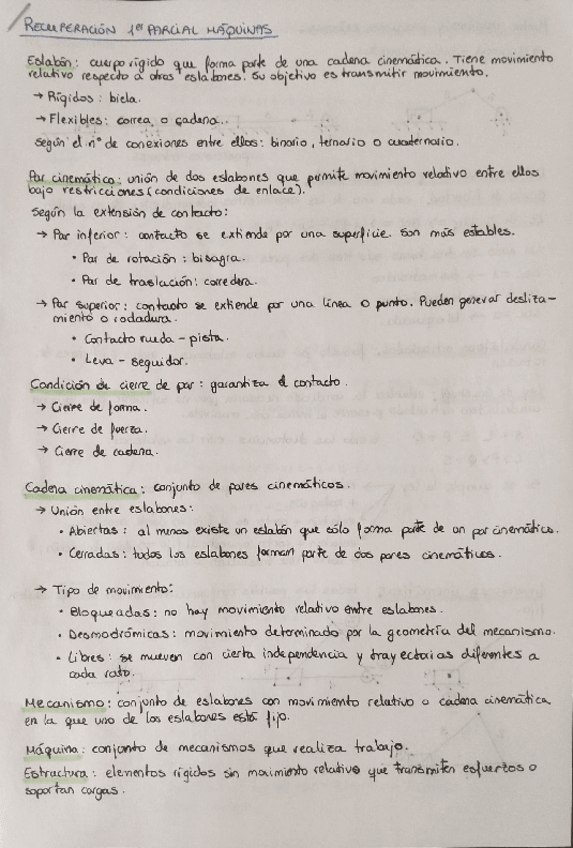 RECUPERACIÓN 1er PARCIAL MÁQUINAS
Eslabón: cuerpo rígido que forma parte de una cadena cinemática. Tiene movimiento
relativo respecto a otros eslabones. Su objetivo es transmitir movimiento.
→ Rígidos: biela.
→ Flexibles: correa o cadena.
Según el nº de conexiones entre ellos: binario, ternario o cuaternario.
Par cinemático: unión de dos eslabones que permite movimiento relativo entre ellos
bajo restricciones (condiciones de enlace).
Según la extensión de contacto:
→ Par inferior: contacto se extiende por una superficie. Son más estables.
• Par de rotación: bisagra.
• Par de traslación: corredera.
→ Par superior: contacto se extiende por una línea o punto. Pueden generar desliza-
miento o rodadura.
• Contacto rueda - pista.
• Leva - seguidor.
Condición de cierre de par: garantiza el contacto.
→ Cierre de forma.
→ Cierre de fuerza.
→ Cierre de cadena.
Cadena cinemática: conjunto de pares cinemáticos.
→ Unión entre eslabones:
• Abiertas: al menos existe un eslabón que sólo forma parte de un par cinemático.
• Cerradas: todos los eslabones forman parte de dos pares cinemáticos.
→ Tipo de movimiento:
• Bloqueadas: no hay movimiento relativo entre eslabones.
• Desmodrómicas: movimiento determinado por la geometría del mecanismo.
• Libres: se mueven con cierta independencia y trayectorias diferentes a
cada rato.
Mecanismo: conjunto de eslabones con movimiento relativo o cadena cinemática
en la que uno de los eslabones está fijo.
Máquina: conjunto de mecanismos que realiza trabajo.
Estructura: elementos rígidos sin movimiento relativo que transmiten esfuerzos o
soportan cargas.